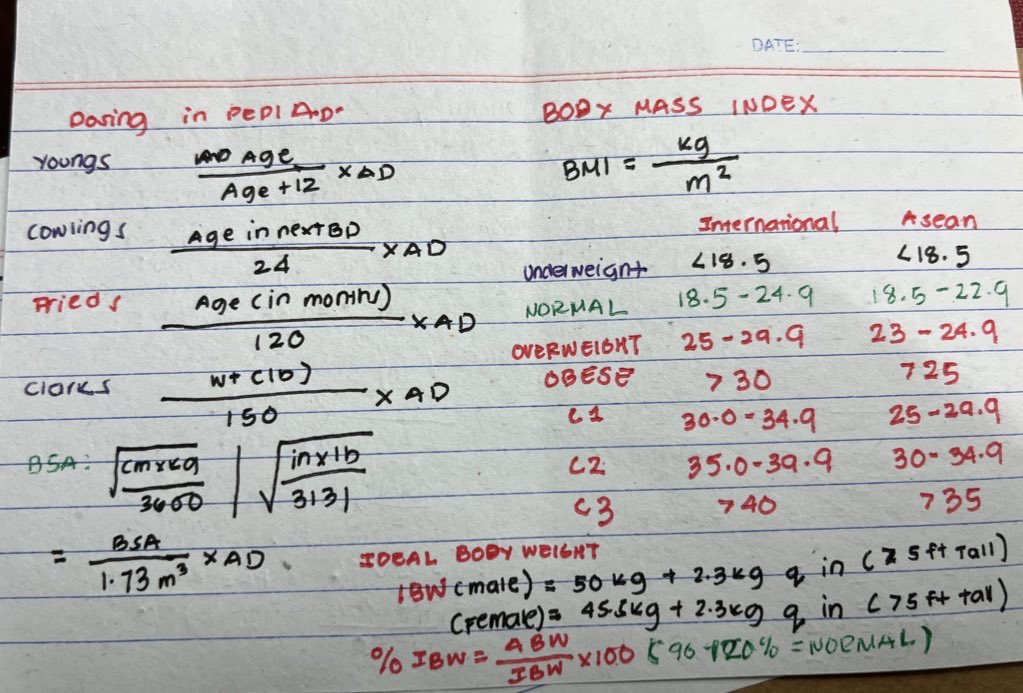 DATE:
Dosing in PEDIA.D.
Youngs Age / Age + 12 × AD
Cowlings Age in next BD / 24 × AD
Frieds Age (in months) / 120 × AD
Clarks wt (lb) / 150 × AD
BSA: √(cm x kg / 3600) | √(in x lb / 3131)
= BSA / 1.73 m³ × AD
BODY MASS INDEX
BMI = kg / m²
International Asean
Underweight <18.5 <18.5
NORMAL 18.5 - 24.9 18.5 - 22.9
OVERWEIGHT 25 - 29.9 23 - 24.9
OBESE >30 >25
C1 30.0 - 34.9 25 - 29.9
C2 35.0 - 39.9 30 - 34.9
C3 >40 >35
IDEAL BODY WEIGHT
IBW (male) = 50 kg + 2.3 kg q in (> 5 ft Tall)
(Female) = 45.5 kg + 2.3 kg q in (>5 ft tall)
% IBW = ABW / IBW × 100 (90 - 120% = NORMAL)